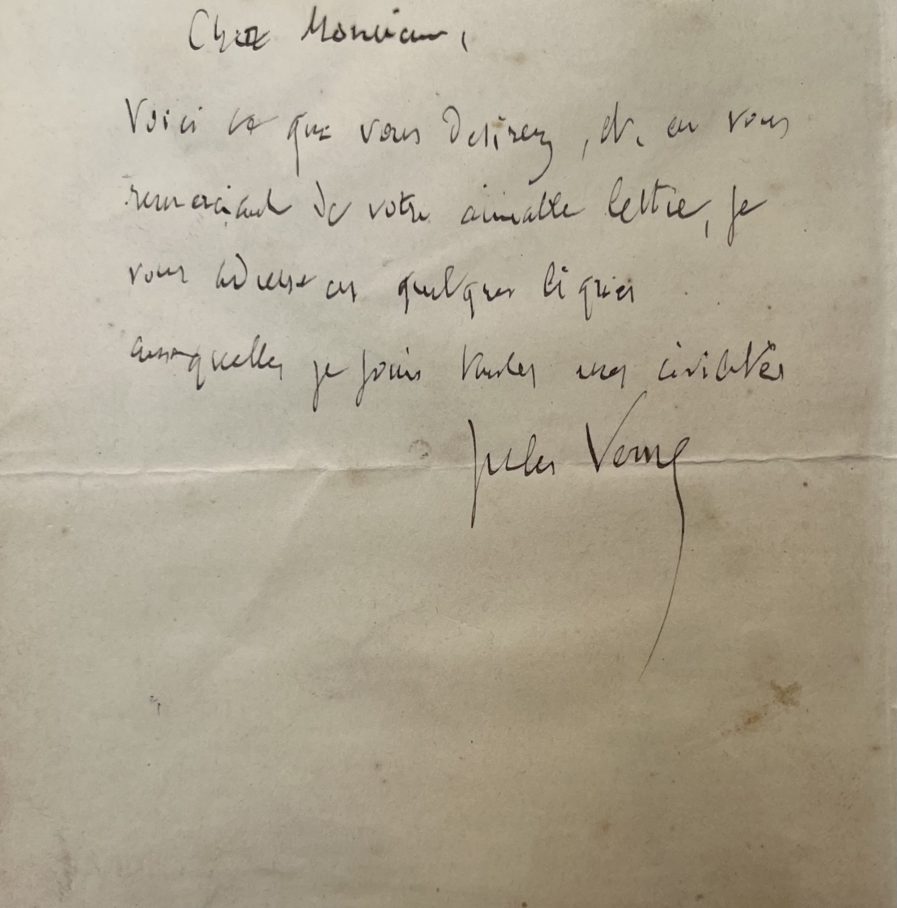 Cher Monsieur,
Voici ce que vous desirez, et, en vous
remerciant de votre aimable lettre, je
vous adresse ces quelques lignes
auxquelles je joins toutes mes civilités
Jules Verne